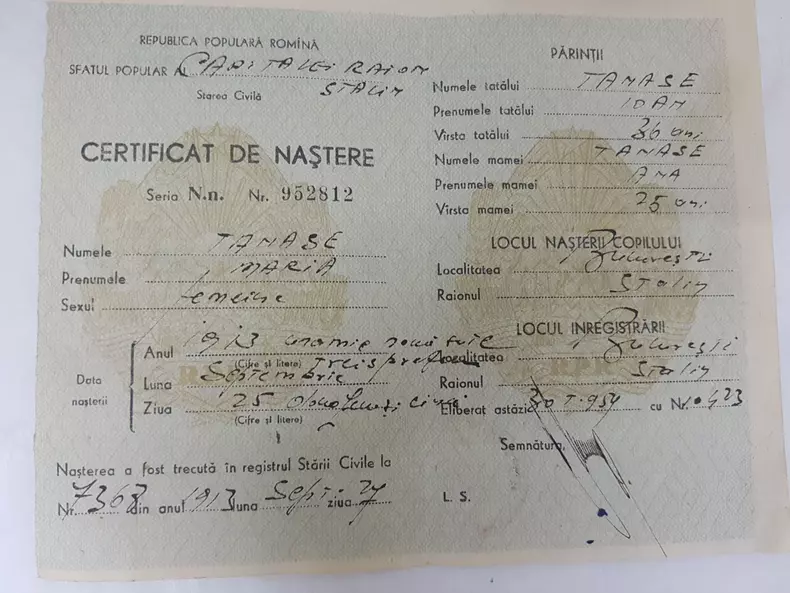 REPUBLICA POPULARĂ ROMÎNĂ
SFATUL POPULAR AL CAPITALEI RAION
STALIN
Starea Civilă
CERTIFICAT DE NAȘTERE
Seria N.n. Nr. 952812
Numele TANASE
Prenumele MARIA
Sexul femeiesc
Data nașterii
Anul 1913 una mie nouă sute
(Cifre și litere) treisprezece
Luna Septembrie
Ziua 25 douăzeci și cinci
(Cifre și litere)
Nașterea a fost trecută în registrul Stării Civile la
Nr. 7368 din anul 1913 luna Sept. ziua 27
PĂRINȚII
Numele tatălui TANASE
Prenumele tatălui IOAN
Vîrsta tatălui 36 ani
Numele mamei TANASE
Prenumele mamei ANA
Vîrsta mamei 25 ani
LOCUL NAȘTERII COPILULUI
Localitatea București
Raionul Stalin
LOCUL INREGISTRĂRII
Localitatea București
Raionul Stalin
Eliberat astăzi 30 I 954 cu Nr. 0423
Semnătura,
L. S.